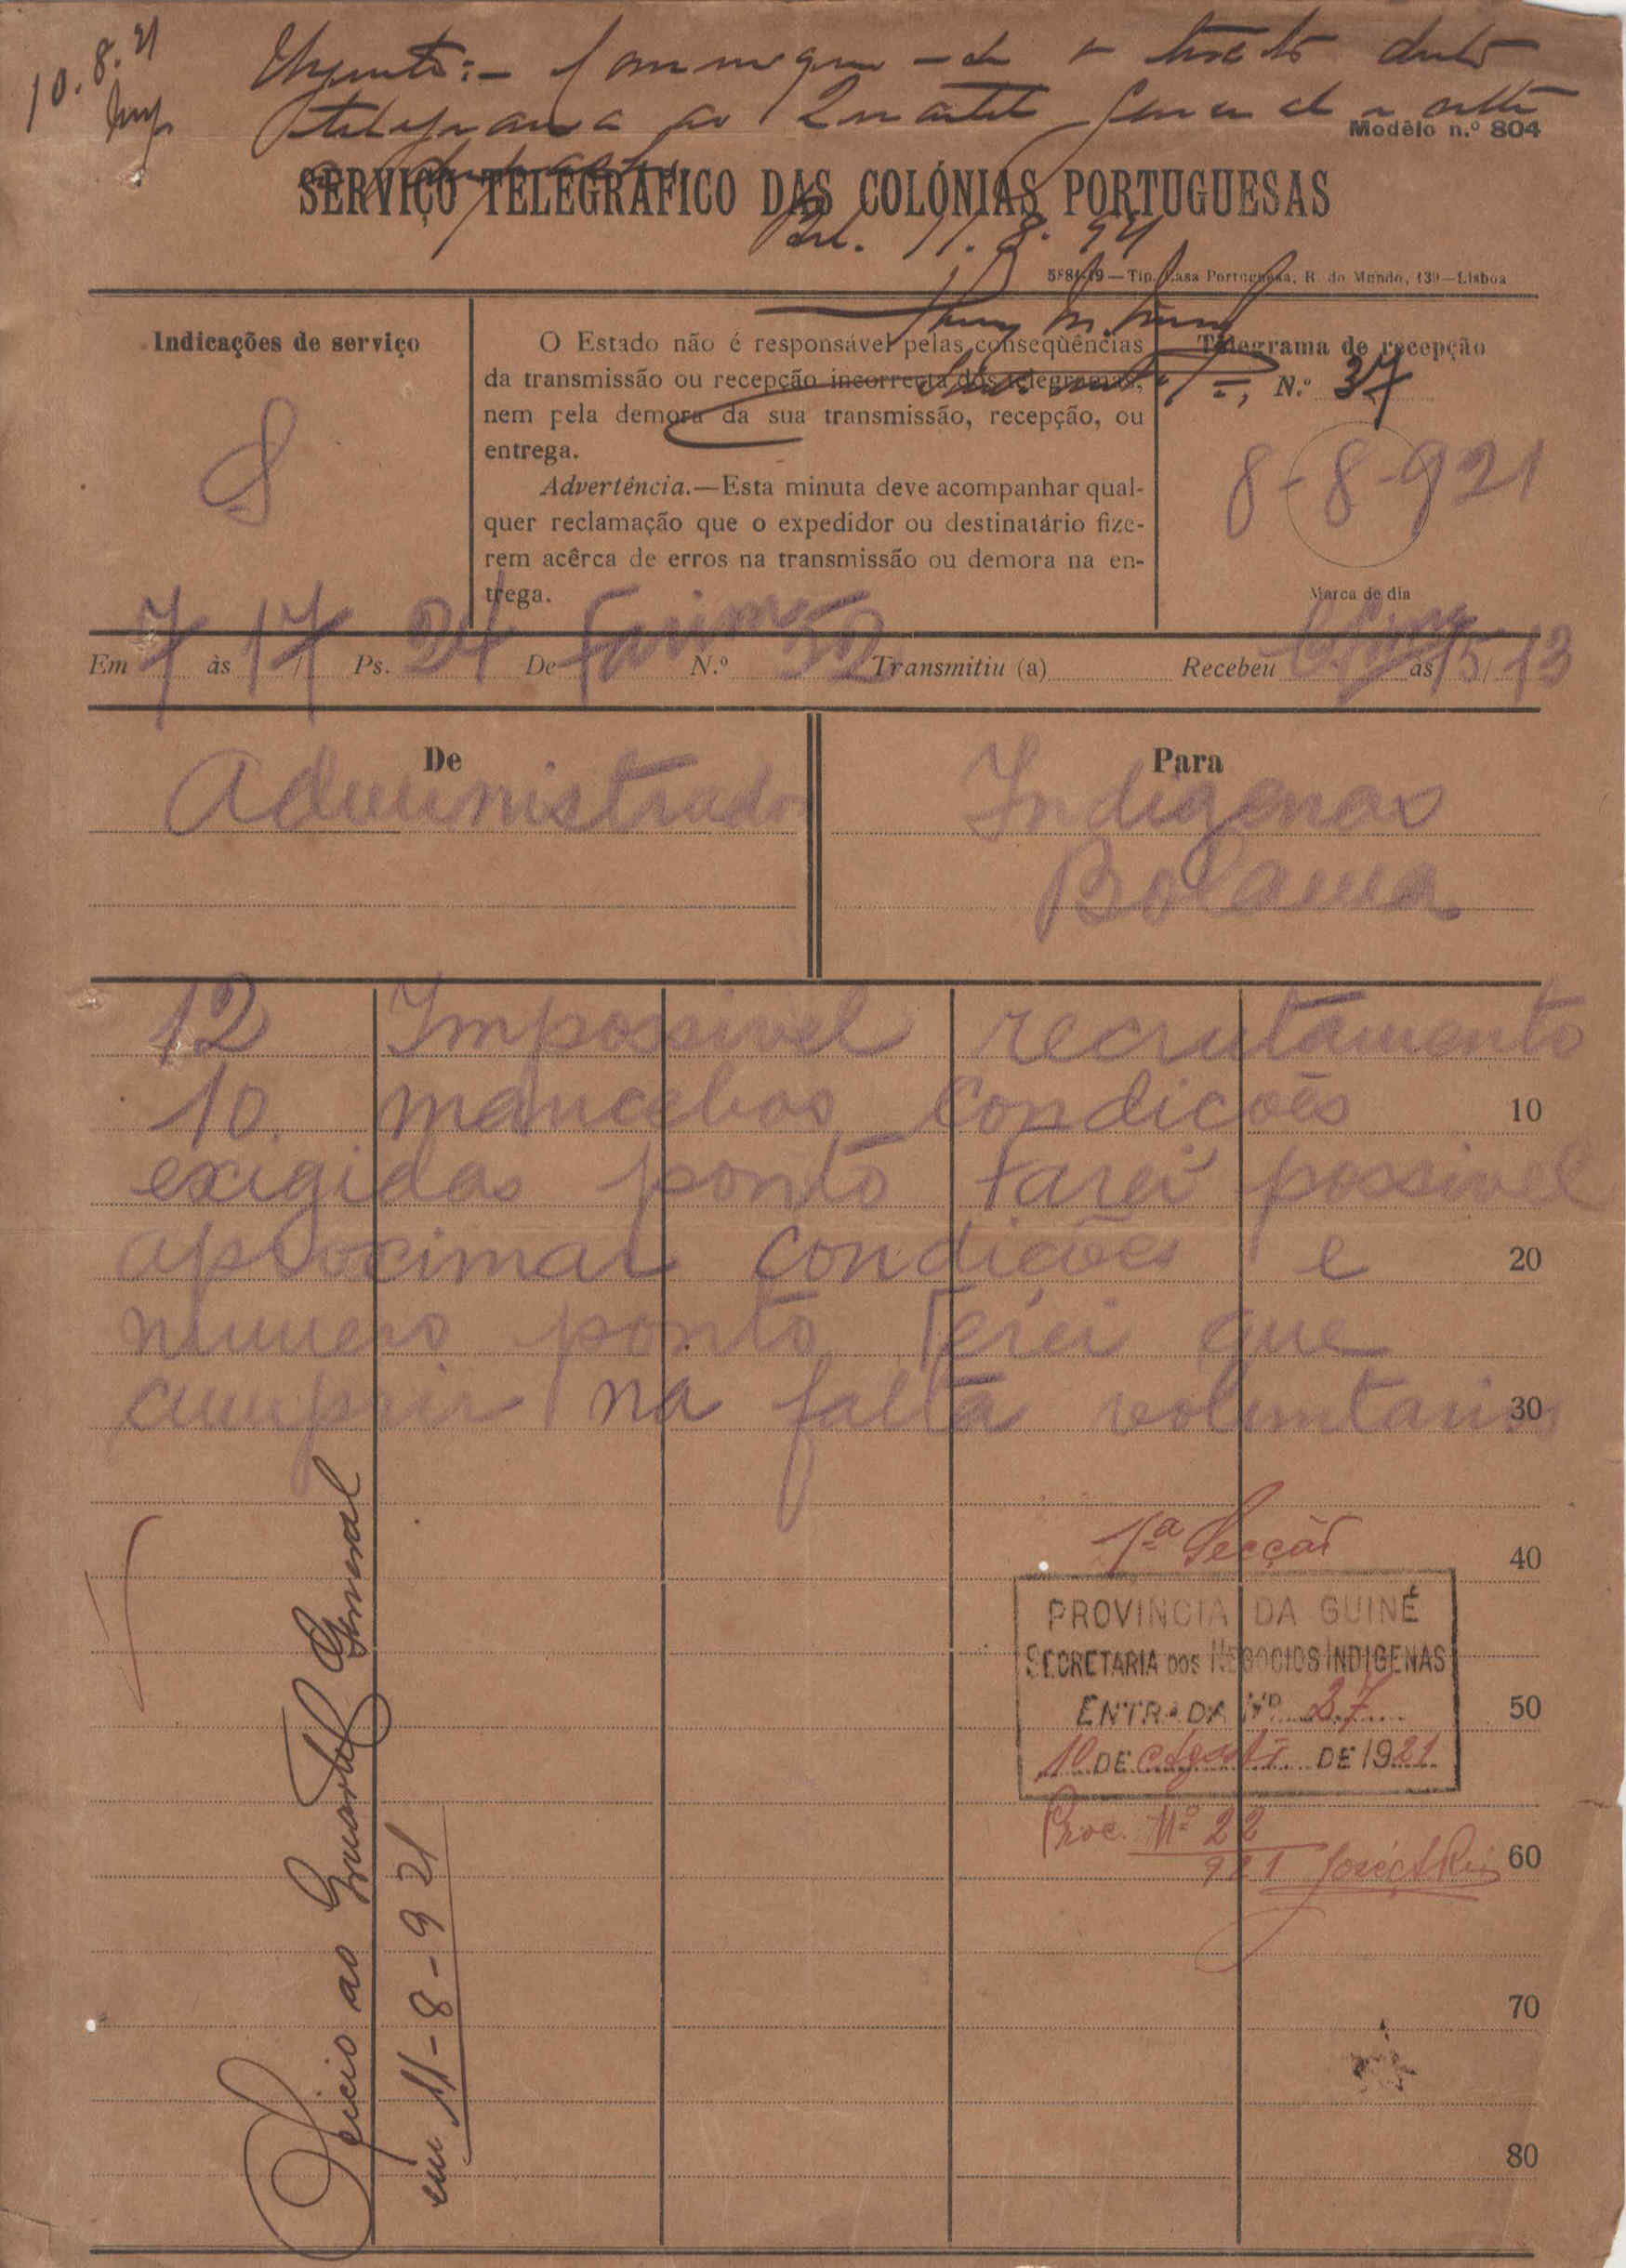 10.8.21
Urgente:- Communique-se o texto deste
telegrama ao Quartel General
Modêlo n.º 804
SERVIÇO TELEGRÁFICO DAS COLÓNIAS PORTUGUESAS
Bol. 11.8.921
5884-19—Tip. Casa Portuguesa, R. do Mundo, 139—Lisboa
Indicações de serviço
S
O Estado não é responsável pelas conseqüências
da transmissão ou recepção incorrecta dos telegramas,
nem pela demora da sua transmissão, recepção, ou
entrega.
Advertência.—Esta minuta deve acompanhar qual-
quer reclamação que o expedidor ou destinatário fize-
rem acêrca de erros na transmissão ou demora na en-
trega.
Telegrama de recepção
N.º 37
8-8-921
Marca de dia
Em 7 às 17/ Ps. 24 De Farim N.º 52 Transmitiu (a) Recebeu às 15/13
De
Administrador
Para
Indigenas
Bolama
12 Impossivel recrutamento
10 mancebos condicões 10
exigidas ponto farei possivel
aproximar condições e 20
numero ponto Terei que
cumprir na falta voluntarios 30
1ª Secção
40
PROVINCIA DA GUINÉ
SECRETARIA DOS NEGOCIOS INDIGENAS
ENTRADA Nº 37
10 DE Agosto DE 1921
50
Proc. Nº 22
921
60
70
80
Oficio ao Quartel General
em 11-8-921